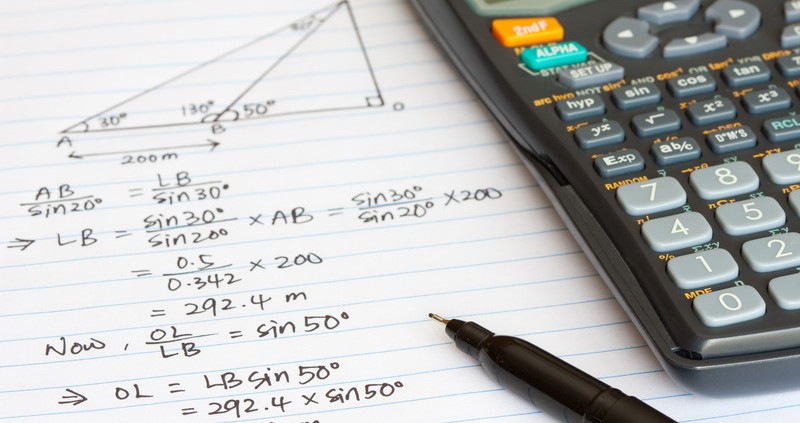 30°
130°
50°
A
B
O
200m
AB/sin20° = LB/sin30°
⇒ LB = sin30°/sin20° × AB = sin30°/sin20° × 200
= 0.5/0.342 × 200
= 292.4 m
Now, OL/LB = sin50°
⇒ OL = LB sin50°
= 292.4 × sin50°
2ndF
ALPHA
SET UP
hyp
sin
cos
tan
yx
√
x²
x³
Exp
ab/c
D°M'S
RCL
RANDOM
7
8
9
4
5
1
2
MDF
0